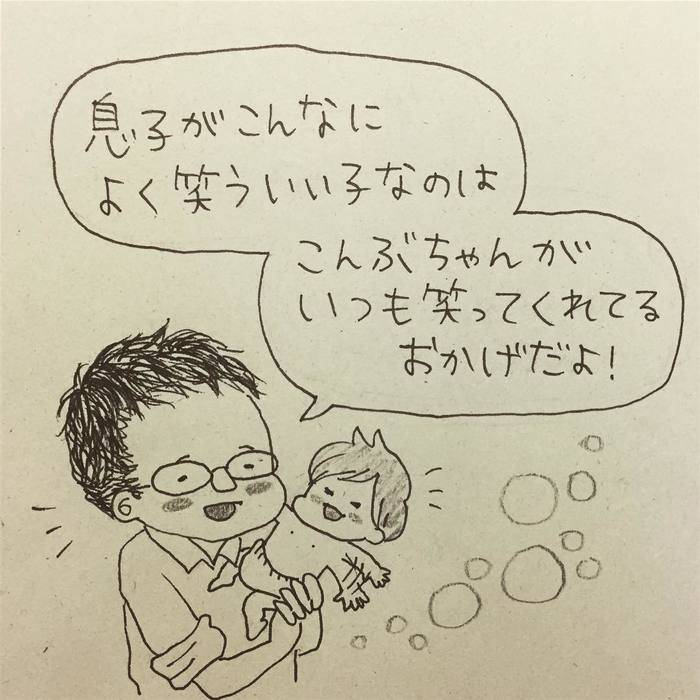 息子がこんなに
よく笑ういい子なのは
こんぶちゃんが
いつも笑ってくれてる
おかげだよ!